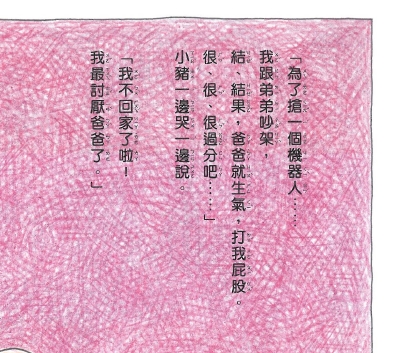 「為了搶一個機器人……
我跟弟弟吵架，
結、結果，爸爸就生氣，打我屁股。
很、很、很過分吧……」
小豬一邊哭一邊說。
「我不回家了啦！
我最討厭爸爸了。」